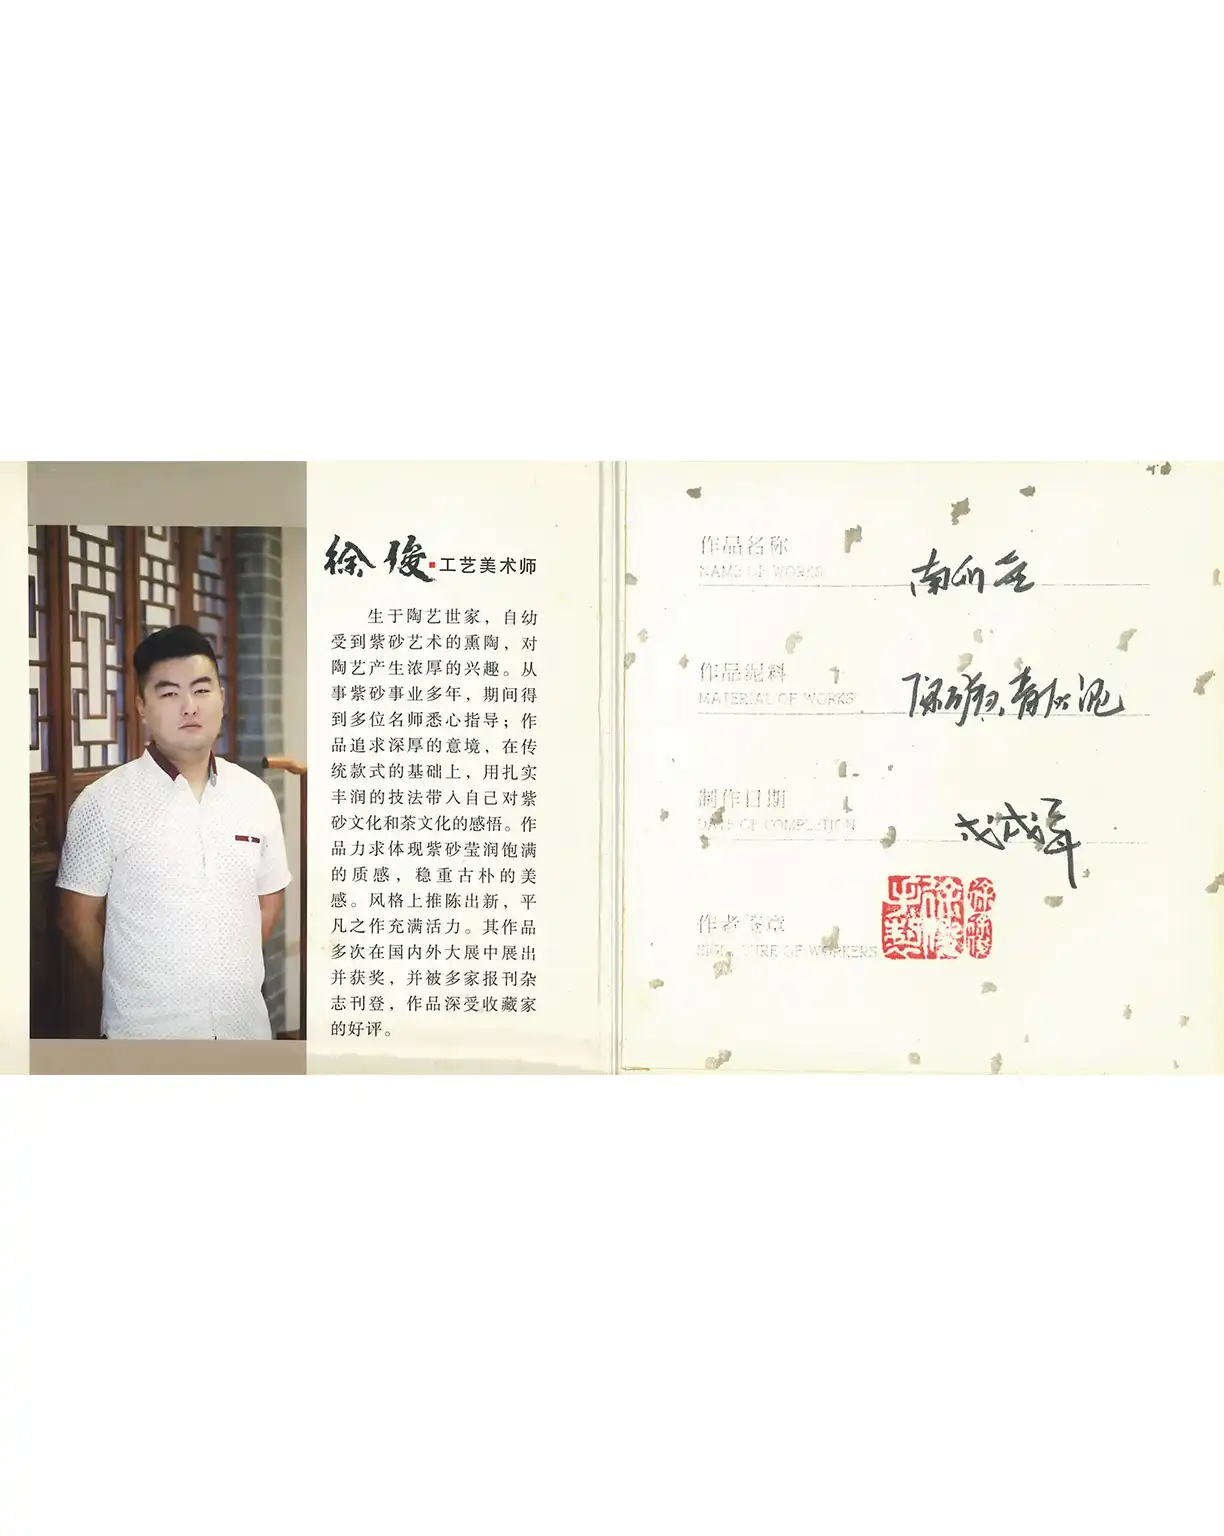 徐俊·工艺美术师
生于陶艺世家，自幼
受到紫砂艺术的熏陶，对
陶艺产生浓厚的兴趣。从
事紫砂事业多年，期间得
到多位名师悉心指导；作
品追求深厚的意境，在传
统款式的基础上，用扎实
丰润的技法带入自己对紫
砂文化和茶文化的感悟。作
品力求体现紫砂莹润饱满
的质感，稳重古朴的美
感。风格上推陈出新，平
凡之作充满活力。其作品
多次在国内外大展中展出
并获奖，并被多家报刊杂
志刊登，作品深受收藏家
的好评。
作品名称
NAME OF WORKS
作品泥料 青灰泥
MATERIAL OF WORKS
制作日期 戊戌年
DATE OF COMPLETION
作者签章
SIGNATURE OF WORKERS